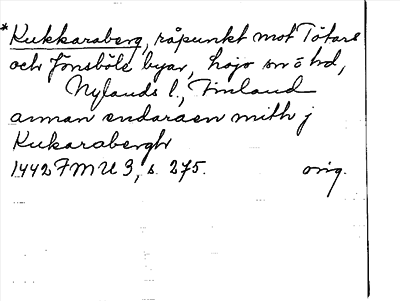 * Kukkaraberg, råpunkt mot Tötars
och Jönsböle byar, Lojo sn ö hd,
Nylands l., Finland
annan endaraen mith j
Kukarabergh
1442 FMU 3, s. 275. orig.